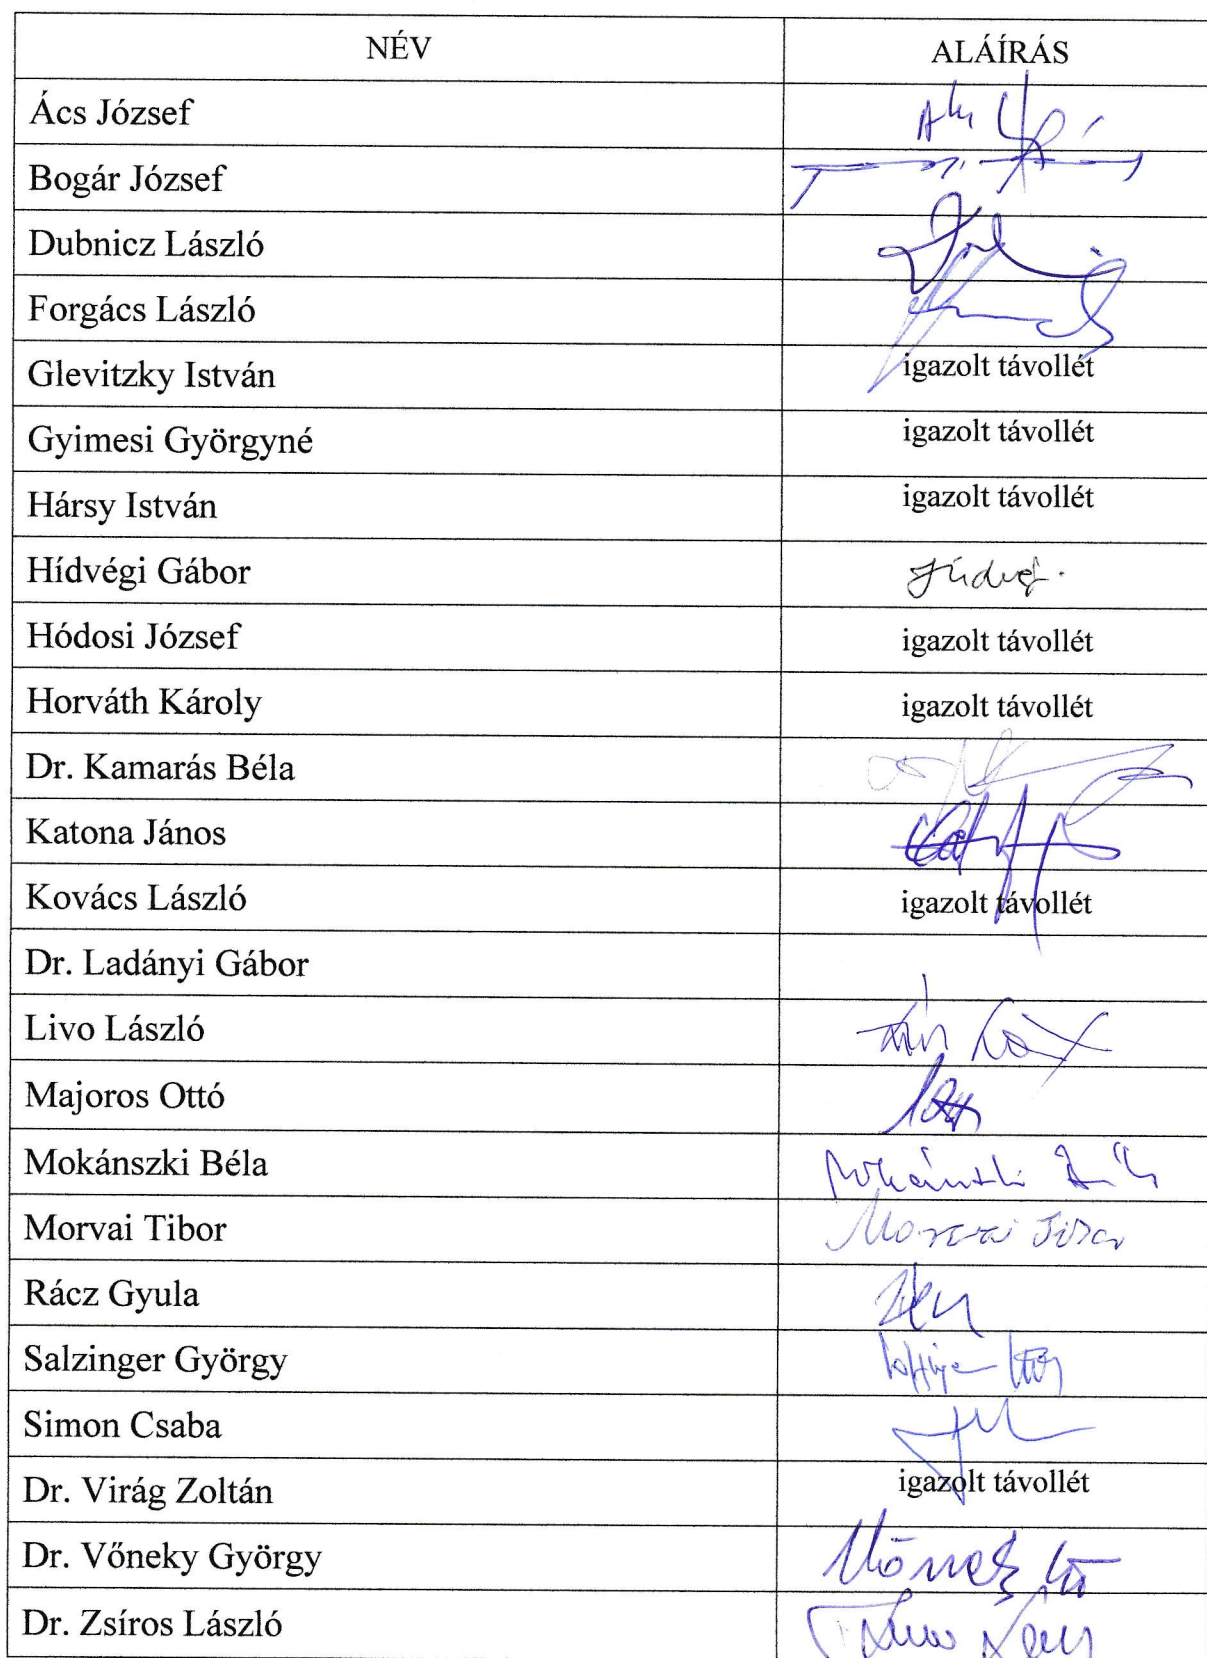 NÉV ALÁÍRÁS
Ács József
Bogár József
Dubnicz László
Forgács László
Glevitzky István igazolt távollét
Gyimesi Györgyné igazolt távollét
Hársy István igazolt távollét
Hídvégi Gábor
Hódosi József igazolt távollét
Horváth Károly igazolt távollét
Dr. Kamarás Béla
Katona János
Kovács László igazolt távollét
Dr. Ladányi Gábor
Livo László
Majoros Ottó
Mokánszki Béla
Morvai Tibor
Rácz Gyula
Salzinger György
Simon Csaba
Dr. Virág Zoltán igazolt távollét
Dr. Vőneky György
Dr. Zsíros László